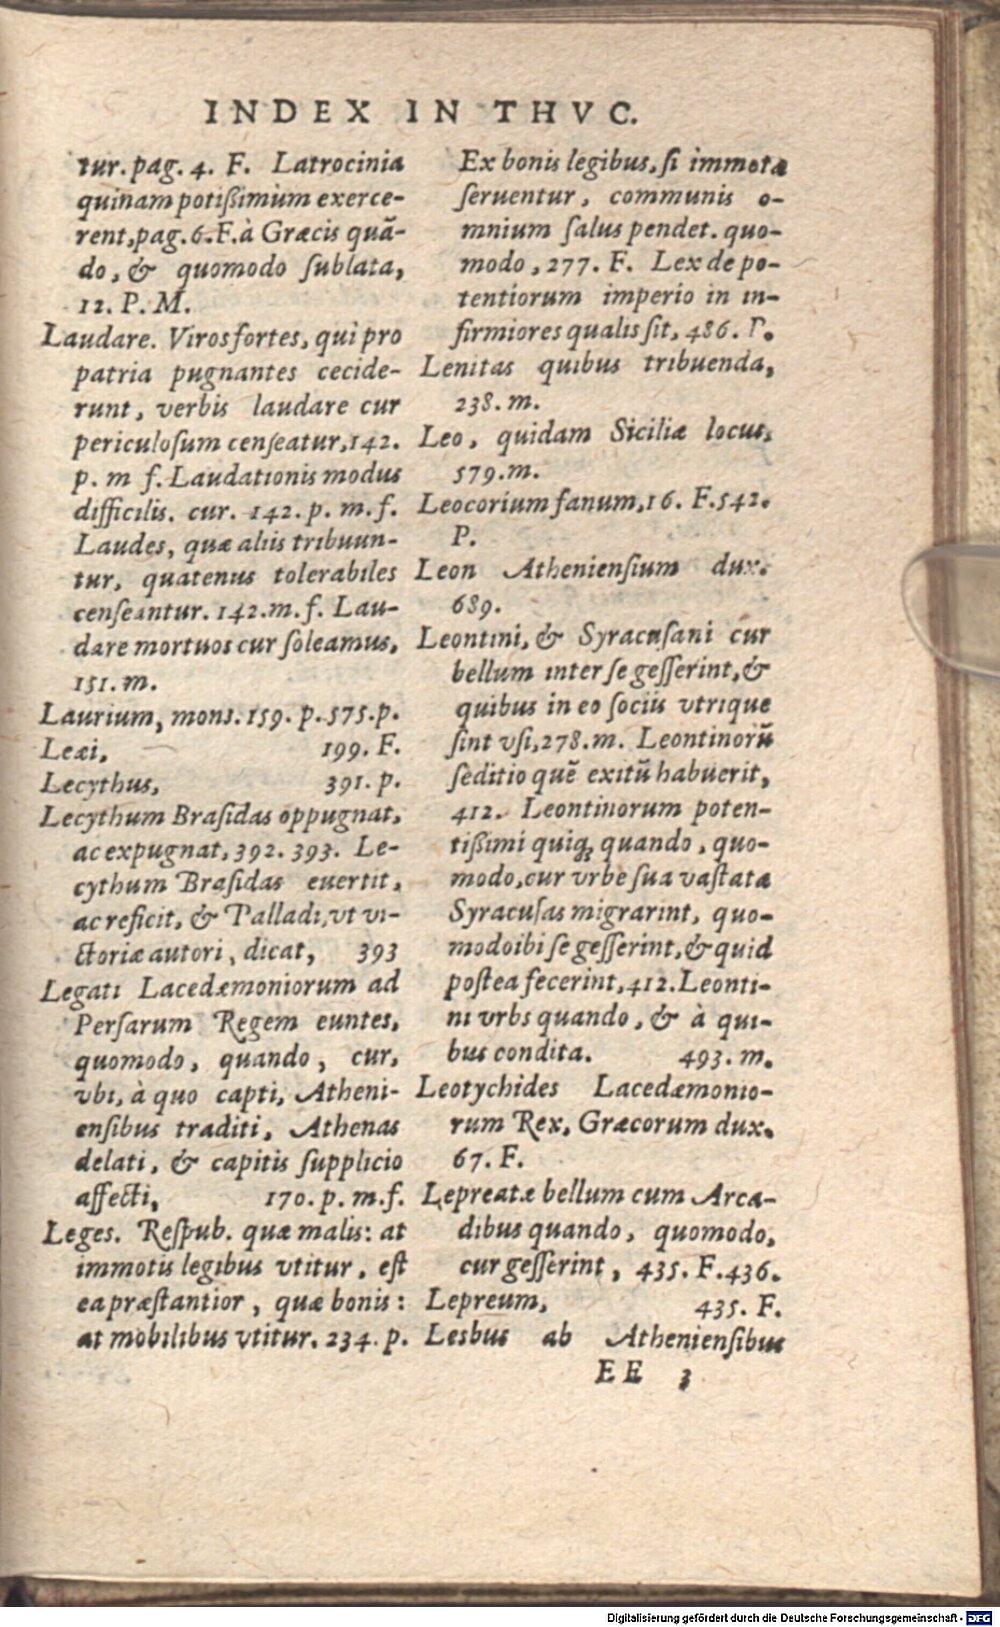 INDEX IN THVC.
tur. pag. 4. F. Latrocinia
quinam potißimium exerce-
rent, pag. 6. F. à Græcis quã-
do, & quomodo ſublata,
12. P. M.
Laudare. Viros fortes, qui pro
patria pugnantes cecide-
runt, verbis laudare cur
periculoſum cenſeatur, 142.
p. m f. Laudationis modus
difficilis. cur. 142. p. m. f.
Laudes, quæ aliis tribuun-
tur, quatenus tolerabiles
cenſeantur. 142. m. f. Lau-
dare mortuos cur ſoleamus,
151. m.
Laurium, mons. 159. p. 575. p.
Leæi, 199. F.
Lecythus, 391. p.
Lecythum Braſidas oppugnat,
ac expugnat, 392. 393. Le-
cythum Braſidas euertit,
ac reficit, & Palladi, vt vi-
ctoriæ autori, dicat, 393
Legati Lacedæmoniorum ad
Perſarum Regem euntes,
quomodo, quando, cur,
vbi, à quo capti, Atheni-
enſibus traditi, Athenas
delati, & capitis ſupplicio
affecti, 170. p. m. f.
Leges. Reſpub. quæ malis: at
immotis legibus vtitur, eſt
ea præſtantior, quæ bonis:
at mobilibus vtitur. 234. p.
Ex bonis legibus, ſi immota
ſeruentur, communis o-
mnium ſalus pendet. quo-
modo, 277. F. Lex de po-
tentiorum imperio in in-
firmiores qualis ſit, 486. P.
Lenitas quibus tribuenda,
238. m.
Leo, quidam Siciliæ locus,
579. m.
Leocorium fanum, 16. F. 542.
P.
Leon Athenienſium dux.
689.
Leontini, & Syracuſani cur
bellum inter ſe geſſerint, &
quibus in eo ſociis vtrique
ſint vſi, 278. m. Leontinorũ
ſeditio quẽ exitũ habuerit,
412. Leontinorum poten-
tißimi quiq; quando, quo-
modo, cur vrbe ſua vaſtata
Syracuſas migrarint, quo-
modo ibi ſe geſſerint, & quid
poſtea fecerint, 412. Leonti-
ni vrbs quando, & à qui-
bus condita. 493. m.
Leotychides Lacedæmonio-
rum Rex, Græcorum dux.
67. F.
Lepreatæ bellum cum Arca-
dibus quando, quomodo,
cur geſſerint, 435. F. 436.
Lepreum, 435. F.
Lesbus ab Athenienſibus
EE 3
Digitalisierung gefördert durch die Deutsche Forschungsgemeinschaft - DFG